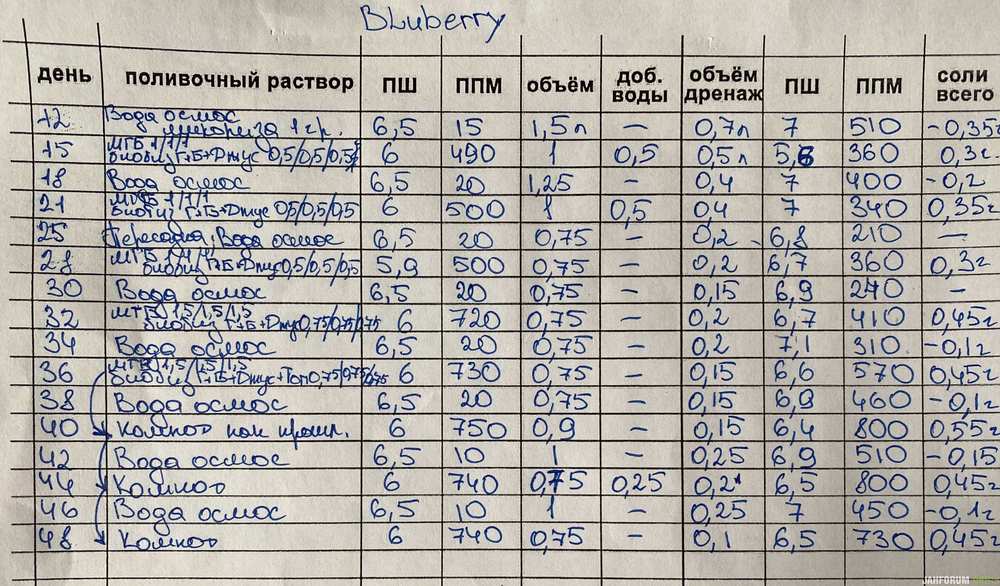 BLuberry
день поливочный раствор ПШ ППМ объём доб. воды объём дренаж ПШ ППМ соли всего
12 Вода осмос микориза 1 гр. 6,5 15 1,5л – 0,7л 7 510 -0,35г
15 МГБ 1/1/1 биобиз Г+Б+Джус 0,5/0,5/0,5 6 490 1 0,5 0,5л 5,6 360 0,3г
18 Вода осмос 6,5 20 1,25 – 0,4 7 400 -0,2
21 МГБ 1/1/1 биобиз Г+Б+Джус 0,5/0,5/0,5 6 500 1 0,5 0,4 7 340 0,35г
25 Пересадка, Вода осмос 6,5 20 0,75 – 0,2 6,8 210 –
28 МГБ 1/1/1 биобиз Г+Б+Джус 0,5/0,5/0,5 5,9 500 0,75 – 0,2 6,7 360 0,3г
30 Вода осмос 6,5 20 0,75 – 0,15 6,9 240 –
32 МГБ 1,5/1,5/1,5 биобиз Г+Б+Джус 0,75/0,75/0,75 6 720 0,75 – 0,2 6,7 410 0,45г
34 Вода осмос 6,5 20 0,75 – 0,2 7,1 310 -0,1г
36 МГБ 1,5/1,5/1,5 биобиз Г+Б+Джус+Топ 0,75/0,75/0,75 6 730 0,75 – 0,15 6,6 570 0,45г
38 Вода осмос 6,5 20 0,75 – 0,15 6,9 460 -0,1г
40 Компот как прошл. 6 750 0,9 – 0,15 6,4 800 0,55г
42 Вода осмос 6,5 10 1 – 0,25 6,9 510 -0,15
44 Компот 6 740 0,75 0,25 0,2 6,5 800 0,45г
46 Вода осмос 6,5 10 1 – 0,25 7 450 -0,1г
48 Компот 6 740 0,75 – 0,1 6,5 730 0,45г